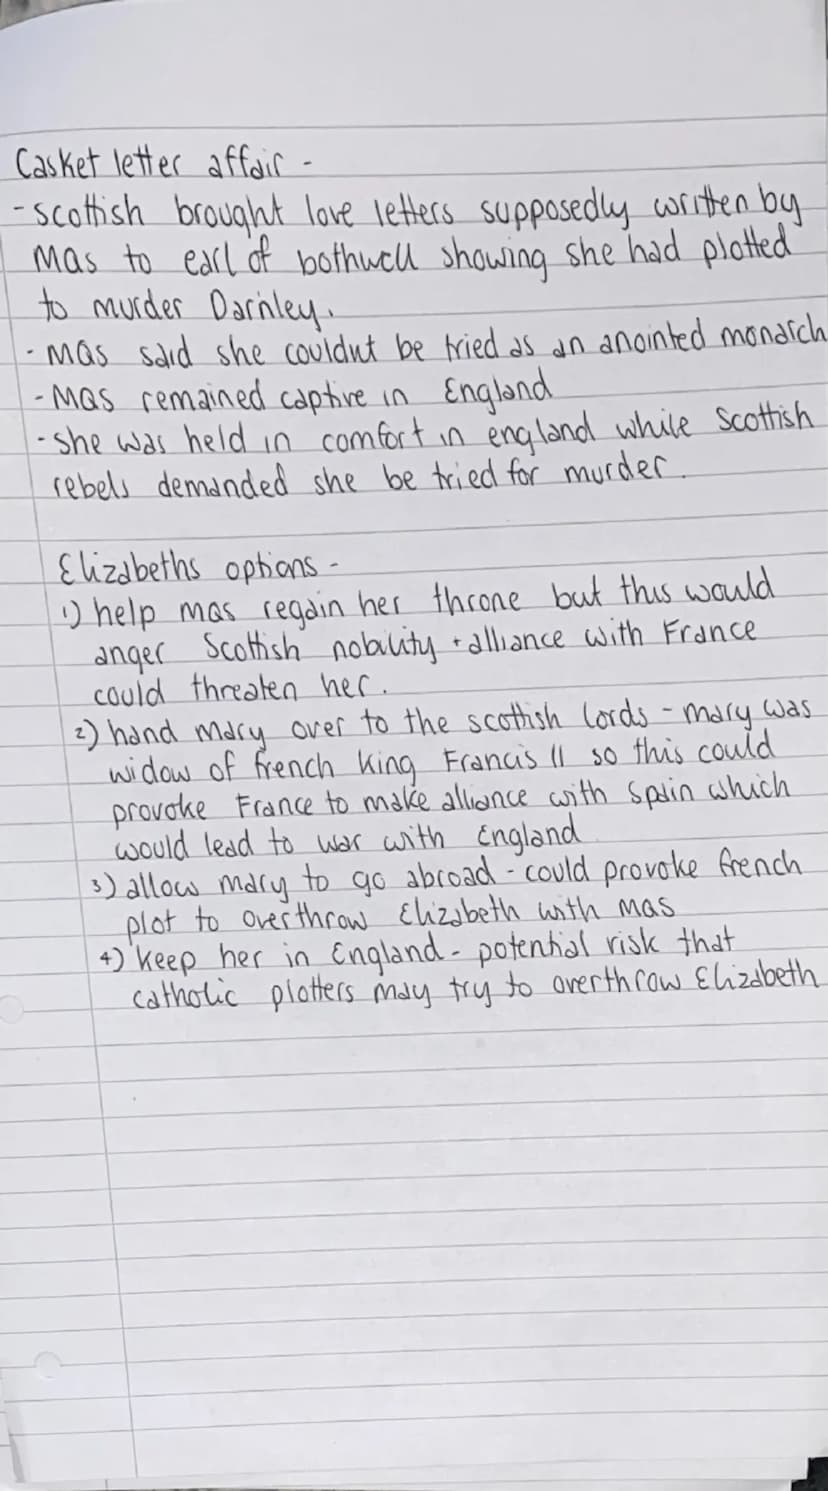 Casket letter affair -
- scottish brought love letters supposedly written by
mas to earl of bothwell showing she had plotted
to murder Darnley.
- mas said she couldnt be tried as an anointed monarch
- Mas remained captive in England
- she was held in comfort in england while Scottish
rebels demanded she be tried for murder.
Elizabeths options -
1) help mas regain her throne but this would
anger Scottish nobility + alliance with France
could threaten her.
2) hand Mary over to the scottish lords - mary was
widow of french King Francis II so this could
provoke France to make alliance with Spain which
would lead to war with England
3) allow mary to go abroad - could provoke french
plot to overthrow Elizabeth with mas
4) keep her in England - potential risk that
catholic plotters may try to overthrow Elizabeth